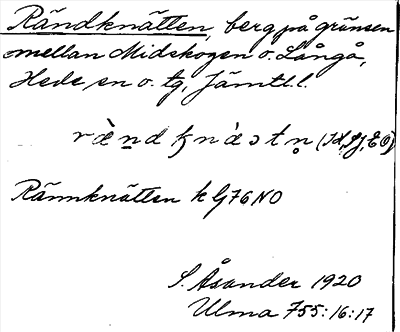 Rändknätten, berg på gränsen
mellan Midskogen o. Långå,
Hede sn o. tg, Jämtl. l.
Rännknätten k G76NO
S. Åsander 1920
Ulma 755:16:17